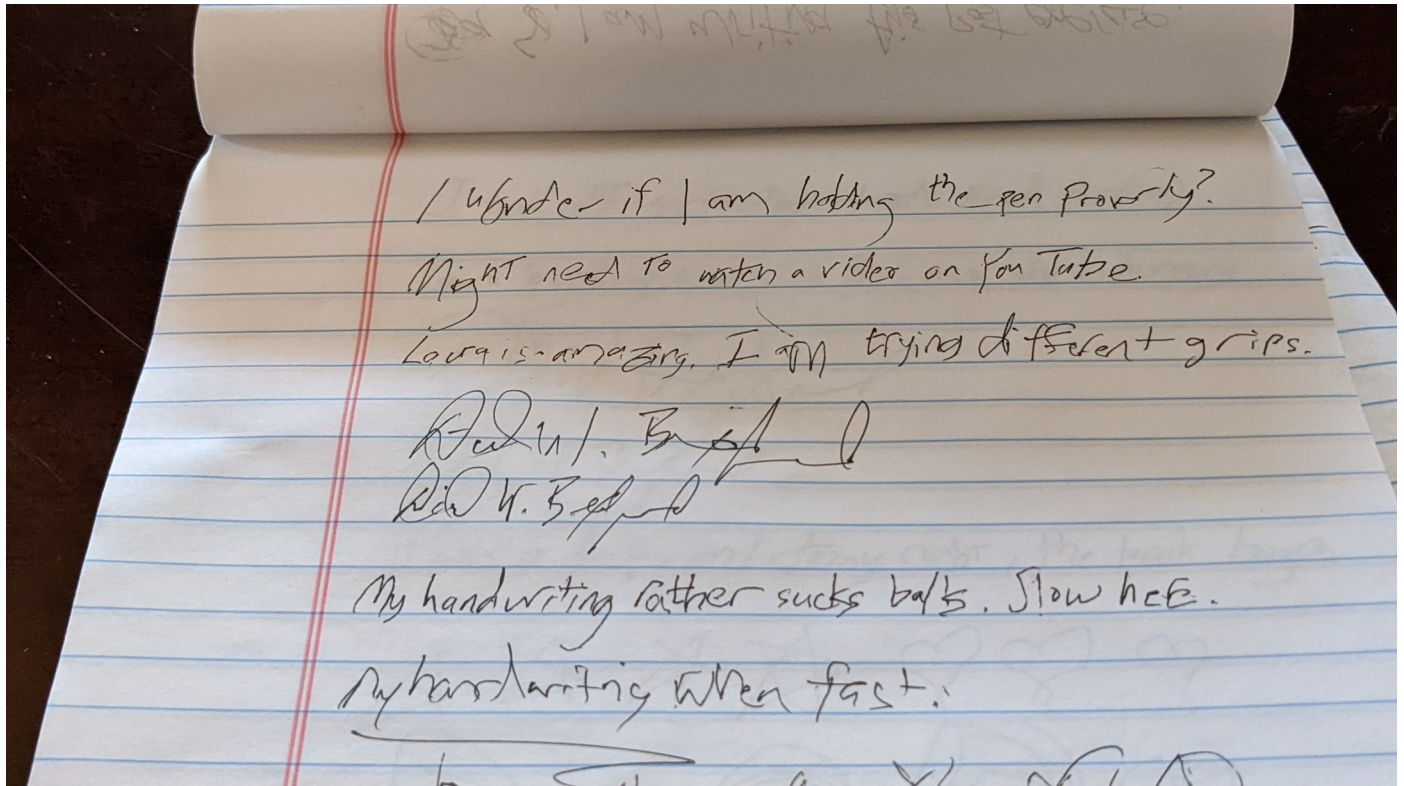 I wonder if I am holding the pen Properly?
Might need to watch a video on YouTube.
Laura is amazing. I am trying different grips.
W. B
W. B
My handwriting rather sucks balls. Slow here.
My handwriting when fast.